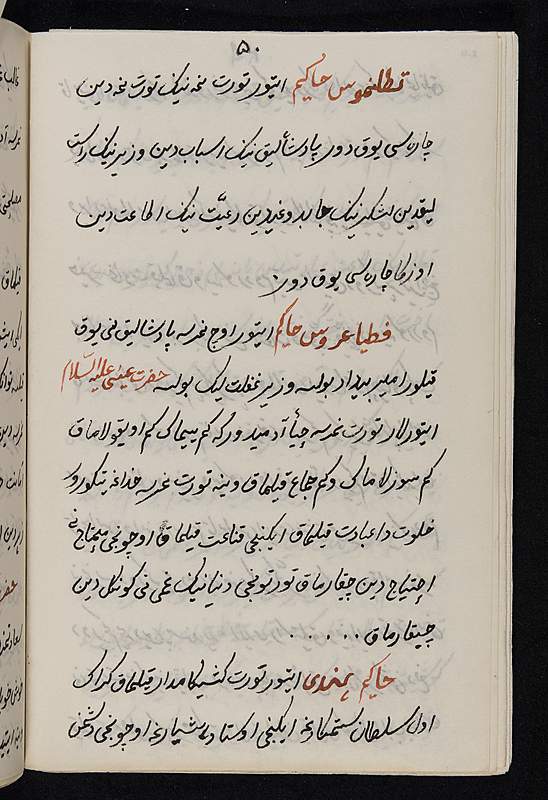 ۵۰
حاکیم ایتور تورت نمه نینک تورت نمه دین
چاره سی یوق دور پادشالیق نینک اسباب دین وزیر نینک راست
لیقدین لشکر نینک وغیریدین رعیّت نینک اطاعت دین
اوزکا چاره سی یوق دور
حاکیم ایتور اوچ نمرسه پادشالیق نی یوق
قیلور امیر بیداد بولسه وزیر غفلت لیک بولسه حضرت عیسی علیه السّلام
ایتورلار تورت نمرسه آدمیدور که کم ییماک کم اویقولاماق
کم سوزلاماک وکم جماع قیلماق وینه تورت نمرسه خداغه
خلوت دا عبادت قیلماق ایکینجی قناعت قیلماق اوچونجی
احتیاج دین چیقارماق تورتونجی دنیا نینک غمی نی کونکل دین
چیقارماق
حاکیم ایتور تورت کشیکا مدار قیلماق کراک
اول سلطان ستمکارغه ایکینجی اوچونجی دشمن